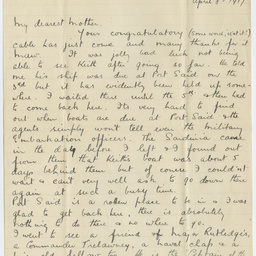 April 8th 1917
My dearest Mother.
Your congratulatory (some word, isn't it!)
cable has just come and many thanks for it
It was jolly bad luck not being
able to see Keith after going so far. He told
me his ship was due at Port Said on the
3rd but it has evidently been held up some-
where. I waited there until the 5th & then had
to come back here. It's very hard to find
out when boats are due at Port Said & the
agents simply won't tell even the military
Embarkation officers. The Sardinia came
in the day before I left & I found out
from them that Keith's boat was about 5
days behind them but of course I couldn't
wait & can't very well ask to go down there
again at such a busy time.
Port Said is a rotten place to be in & I was
glad to get back here. There is absolutely
nothing to do & there is no where to go.
I went to see a friend of Major Rutledge's,
a Commander Trelawney, a naval chap & a